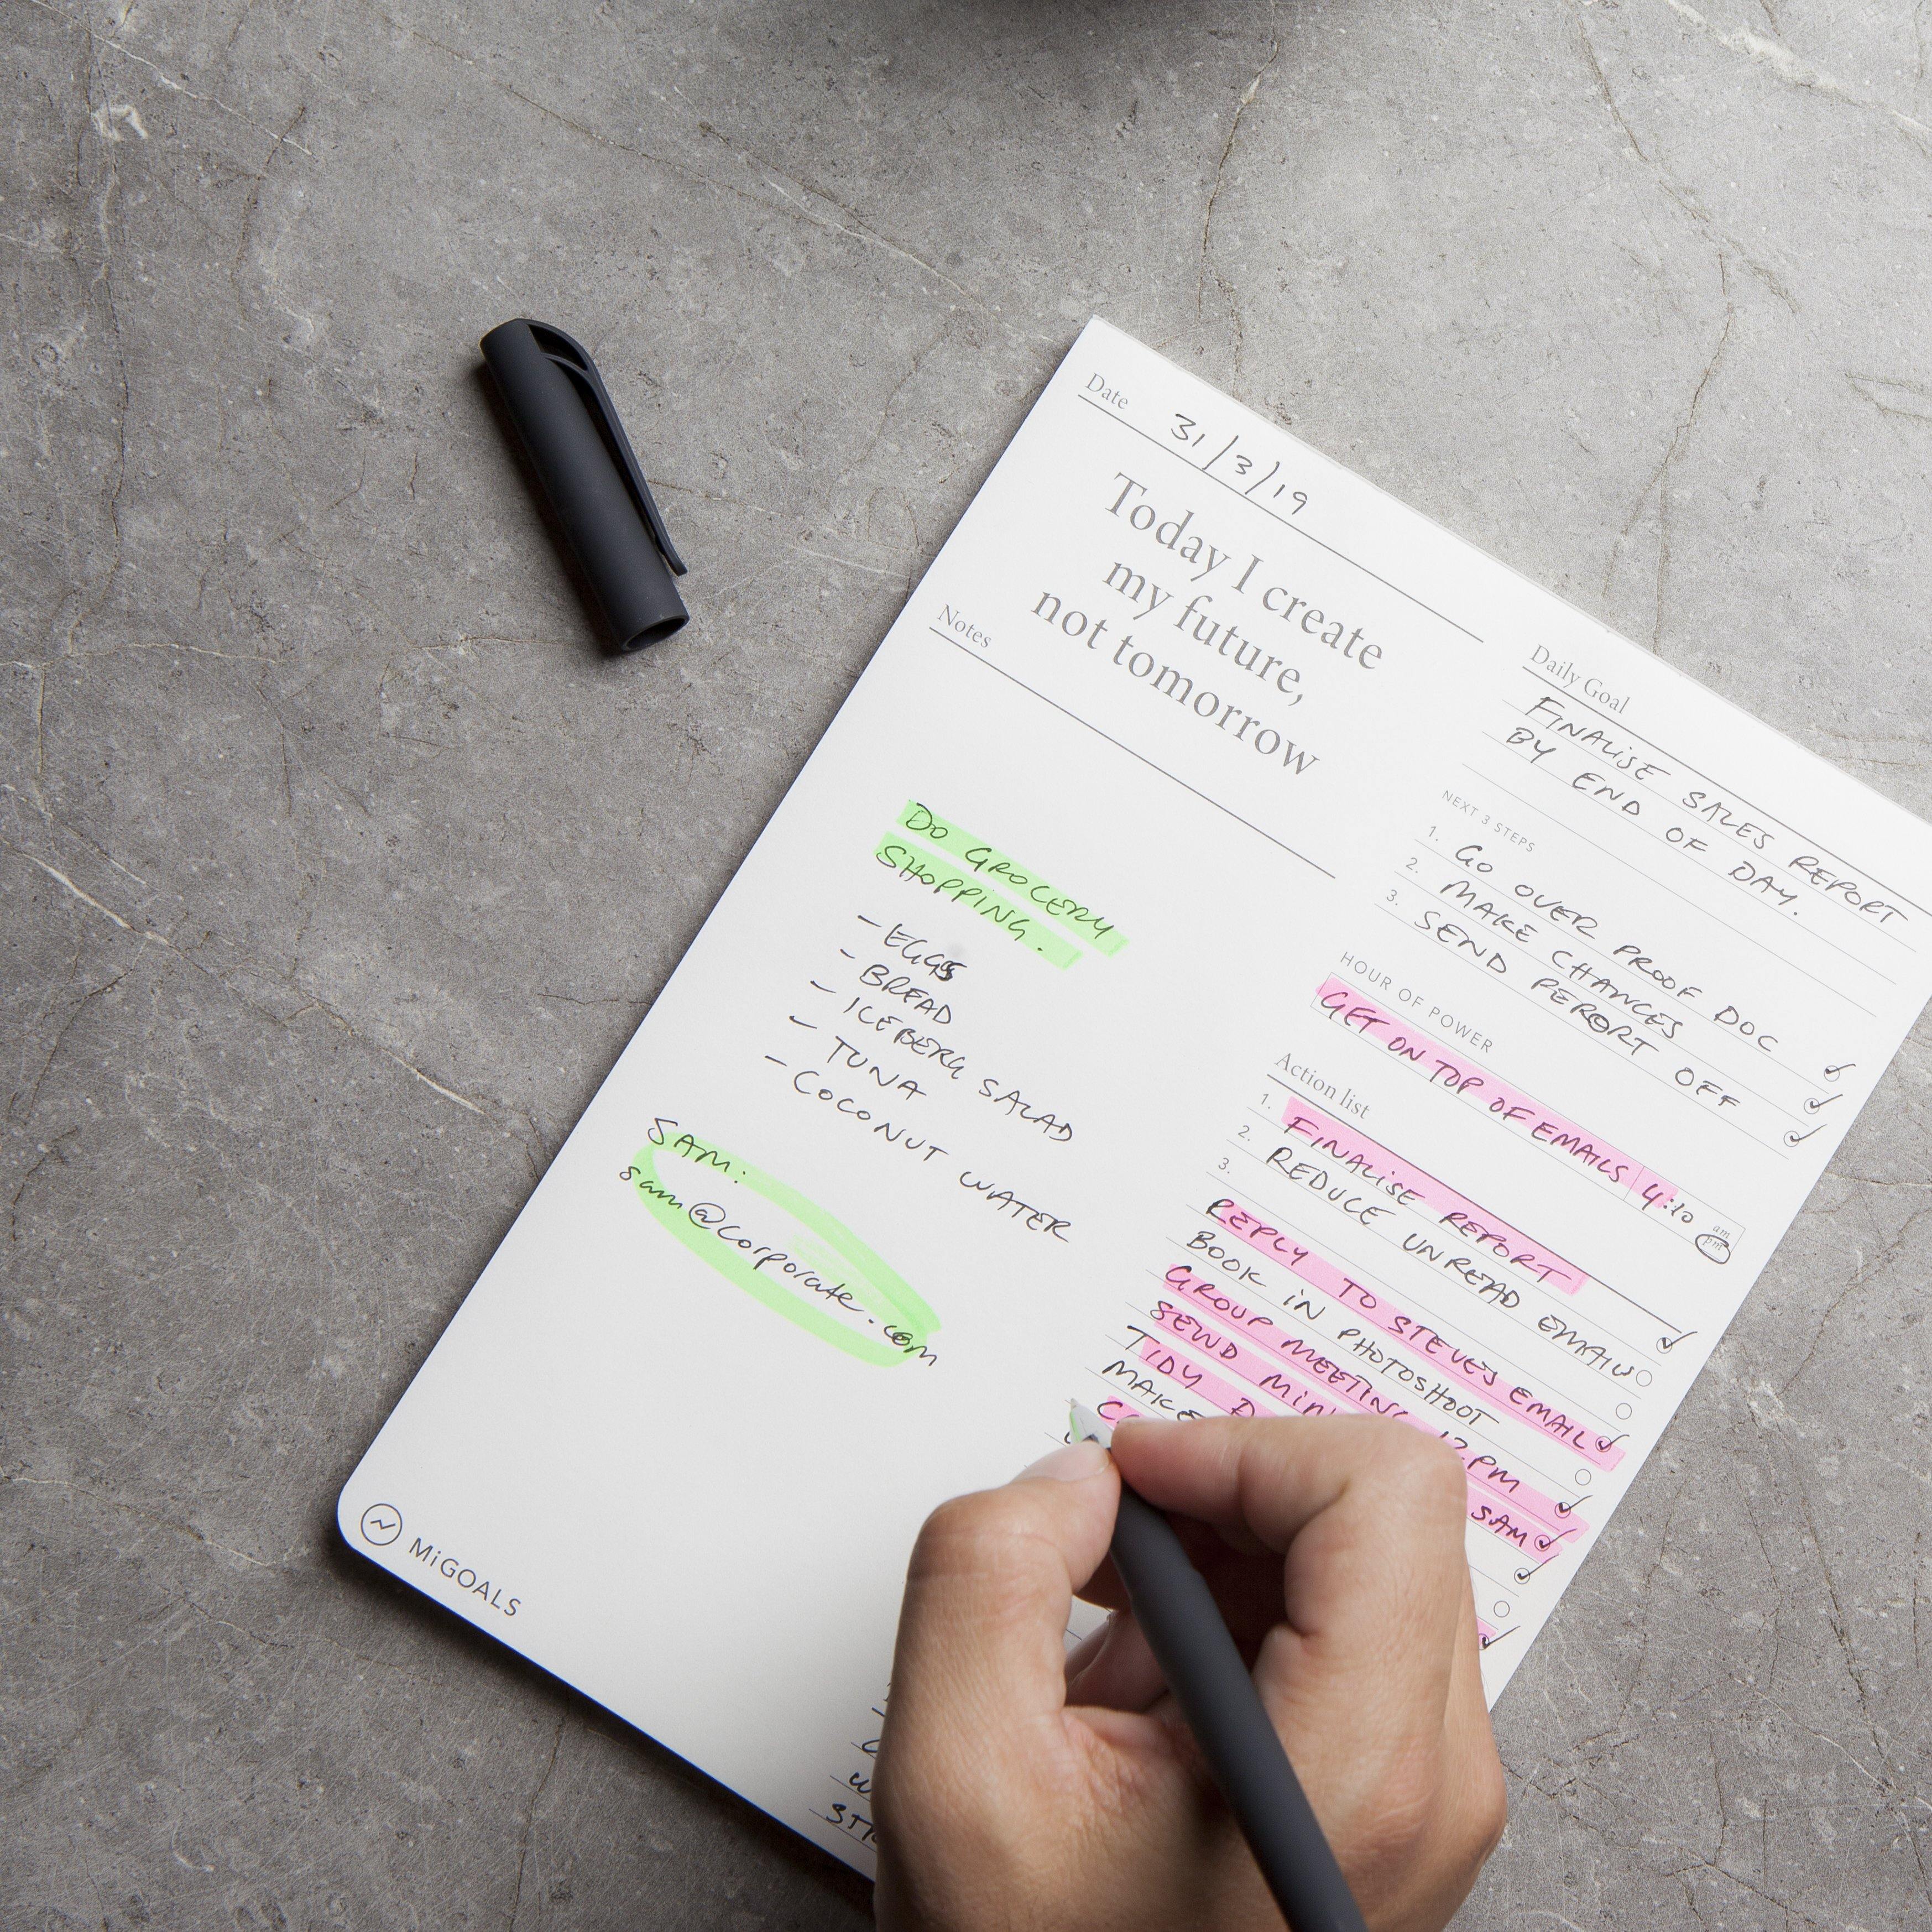 Date 31/3/19
Today I create
my future,
not tomorrow
Notes
DO GROCERY
SHOPPING.
- EGGS
- BREAD
- ICEBERG SALAD
- TUNA
- COCONUT WATER
SAM:
sam@corporate.com
MiGOALS
Daily Goal
FINALISE SALES REPORT
BY END OF DAY.
NEXT 3 STEPS
1. GO OVER PROOF DOC
2. MAKE CHANGES
3. SEND REPORT OFF
HOUR OF POWER
GET ON TOP OF EMAILS 4:10 am pm
Action list
1. FINALISE REPORT
2. REDUCE UNREAD EMAILS
3.
REPLY TO STEVES EMAIL
BOOK IN PHOTOSHOOT
GROUP MEETING 12PM
SEND SAM
TIDY
MAKE